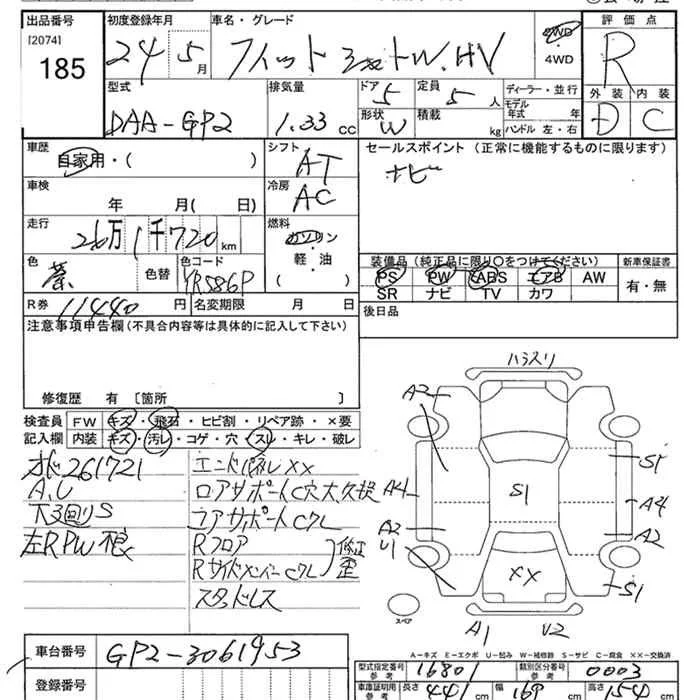 出品番号 初度登録年月 車名・グレード 評価点
[2074]
185
24 5月 フィット シャトルW.HV 2WD・4WD R
型式 排気量 ドア 定員 ディーラー・並行 外装 内装
DAA-GP2 1.33 CC 5 5人 モデル年式 年 D C
形状 積載
W kg ハンドル 左・右
車歴 シフト セールスポイント (正常に機能するものに限ります)
自家用・( ) AT ナビ
車検 冷房
年 月( 日) AC
走行 燃料
26万1千720km ガソリン・軽油( )
色 色替 色コード 装備品 (純正品に限り○をつけてください) 新車保証書
茶 YR586P PS PW ABS エアB AW 有・無
SR ナビ TV カワ
R券 11440円 名変期限 月 日 後日品
注意事項申告欄 (不具合内容等は具体的に記入して下さい)
修復歴 有 [箇所
検査員 FW キズ・飛石・ヒビ割・リペア跡・×要
記入欄 内装 キズ・汚レ・コゲ・穴・スレ・キレ・破レ
261721
A,U
下3回りS
左RPW不良
XX
ロアサポートC穴
リアサポートCクレ
Rフロア
RサイドメンバーCクレ
修正歪
スタッドレス
ハラスリ
A2
S1
A4 S1 A4
A2 A2
U1
XX
S1
スペア
A1 U2
A-キズ E-エクボ U-凹み W-補修跡 S-サビ C-腐食 XX-交換済
車台番号 GP2-3061953
登録番号
型式指定番号 参考 16801 類別区分番号 参考 0003
車庫証明用 参考 長さ 441 cm 幅 169 cm 高さ 154 cm